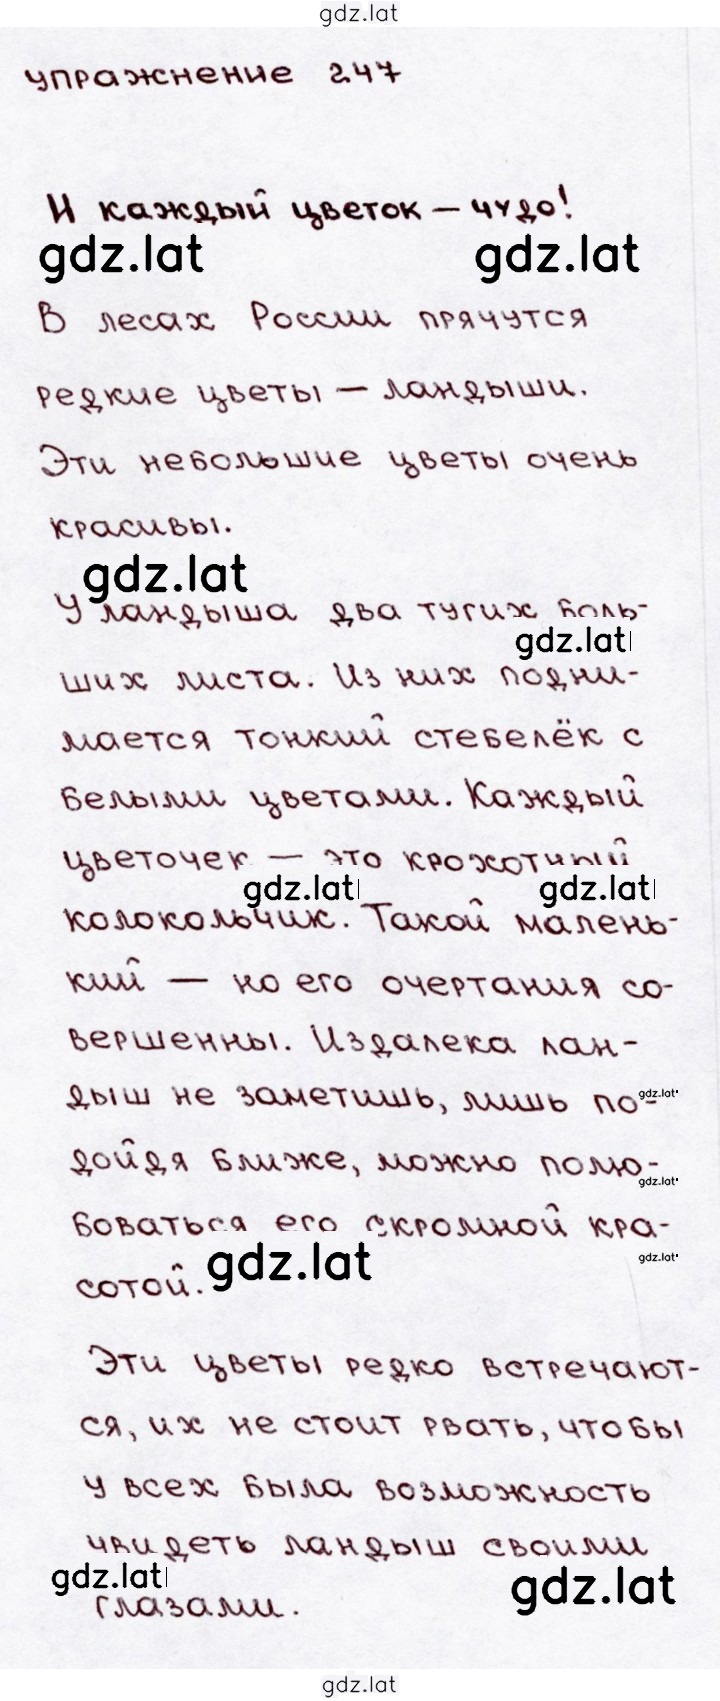 gdz.lat
упражнение 247
И каждый цветок – чудо!
gdz.lat gdz.lat
В лесах России прячутся
редкие цветы – ландыши.
Эти небольшие цветы очень
красивы.
gdz.lat
У ландыша два тугих боль-
gdz.lat
ших листа. Из них подни-
мается тонкий стебелёк с
белыми цветами. Каждый
цветочек – это крохотный
gdz.lat gdz.lat
колокольчик. Такой малень-
кий – но его очертания со-
вершенны. Издалека лан-
дыш не заметишь, лишь по-
gdz.lat
дойдя ближе, можно полю-
gdz.lat
боваться его скромной кра-
gdz.lat
сотой.
gdz.lat
Эти цветы редко встречают-
ся, их не стоит рвать, чтобы
у всех была возможность
увидеть ландыш своими
gdz.lat gdz.lat
глазами.
gdz.lat